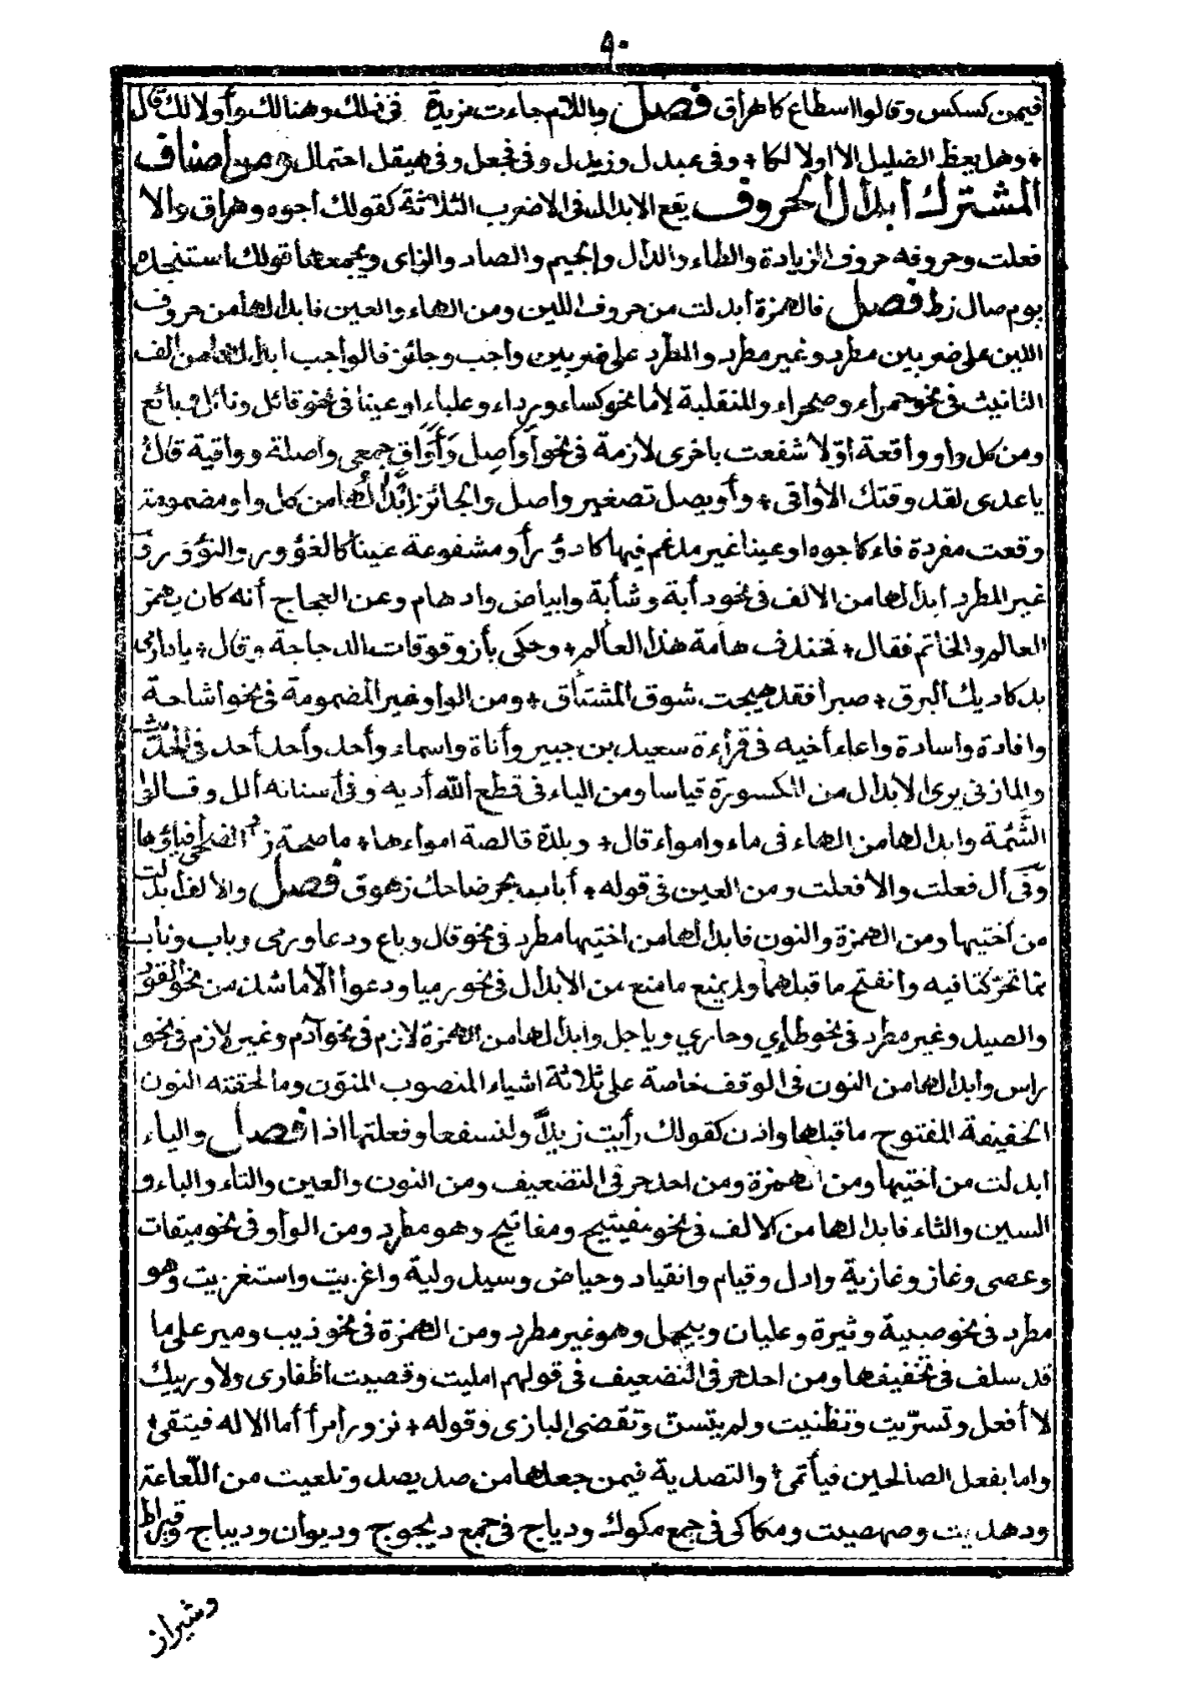 ٩٠
فيمن كسكس وقالوا اسطاع كاهراق فصل واللام جاءت مزيدة في ذلك وهنالك وأولالك قال
✦ وهل يعظ الضليل الا اولالكا ✦ وفي عبدل وزيدل وفي فحجل وفي هيقل احتمال ومن اصناف
المشترك ابدال الحروف يقع الابدال في الاضرب الثلاثة كقولك أجوه وهراق والا
فعلت وحروفه حروف الزيادة والطاء والدال والجيم والصاد والزاي ويجمعها قولك استنجده
يوم صال زط فصل فالهمزة أبدلت من حروف اللين ومن الهاء والعين فابدالها من حروف
اللين على ضربين مطرد وغير مطرد والمطرد على ضربين واجب وجائز فالواجب ابدالها من الف
التانيث في نحو حمراء وصحراء والمنقلبة لاما نحو كساء ورداء وعلباء او عينا في نحو قائل ونائل وبائع
ومن كل واو واقعة اوّلا شفعت باخرى لازمة في نحو أَوَاصِل وَأَوَاقٍ جمعي واصلة وواقية قال
يا عدي لقد وقتك الأواقي ✦ وأويصل تصغير واصل والجائز ابدالها من كل واو مضمومة
وقعت مفردة فاء كاجوه او عينا غير مدغم فيها كادؤر أو مشفوعة عينا كالغؤور والنؤور و
غير المطرد ابدالها من الالف في نحو دأبة وشأبة وابيأض وادهام وعن العجاج أنه كان يهمز
العالم والخاتم فقال ✦ فخندف هامة هذا العألم ✦ وحكى بأز وقوقات الدجاجة وقال ✦ يا دار مي
بدكاديك البرق ✦ صبرا فقد هيجت شوق المشتأق ✦ ومن الواو غير المضمومة في نحو اشاحة
وافادة واسادة واعاء أخيه في قراءة سعيد بن جبير وأناة واسماء وأحد وأحد أحد في الحديث
والمازني يرى الابدال من المكسورة قياسا ومن الياء في قطع الله أديه وفي أسنانه ألل وقالوا
الشئمة وابدالها من الهاء في ماء وامواء قال ✦ وبلدة قالصة امواءها ✦ ماصحة رأد الضحى أفياؤها
وفي أل فعلت والا فعلت ومن العين في قوله ✦ أباب بحر ضاحك زهوق فصل والالف أبدلت
من اختيها ومن الهمزة والنون فابدالها من اختيها مطرد في نحو قال وباع ودعا ورمى وباب وناب
مما تحركتا فيه وانفتح ما قبلهما ولم يمنع ما منع من الابدال في نحو رميا ودعوا الّا ما شذ من نحو القود
والصيد وغير مطرد في نحو طائي وحاري وياجل وابدالها من الهمزة لازم في نحو آدم وغير لازم في نحو
راس وابدالها من النون في الوقف خاصة على ثلاثة اشياء المنصوب المنون وما لحقته النون
الخفيفة المفتوح ما قبلها واذن كقولك رأيت زيدًا ولنسفعا وفعلتها اذا فصل والياء
ابدلت من اختيها ومن الهمزة ومن احد حرفي التضعيف ومن النون والعين والتاء والباء و
السين والثاء فابدالها من الالف في نحو مفيتيح ومفاتيح وهو مطرد ومن الواو في نحو ميقات
وعصي وغاز وغازية وادل وقيام وانقياد وحياض وسيد ولية واغزيت واستغزيت وهو
مطرد في نحو صبية وثيرة وعليان وييجل وهو غير مطرد ومن الهمزة في نحو ذيب ومير على ما
قد سلف في تخفيفها ومن احد حرفي التضعيف في قولهم امليت وقصيت اظفاري ولا وربيك
لا أفعل وتسرّيت وتظنيت ولم يتسن وتقضى البازي وقوله ✦ نزور امرأ أما الاله فيتقي ✦
واما بفعل الصالحين فيأتمي ✦ والتصدية فيمن جعلها من صد يصد وتلعيت من اللّعاعة
ودهديت وصهصيت ومكاكي في جمع مكوك ودياج في جمع ديجوج وديوان وديباج وقيراط
وشيراز